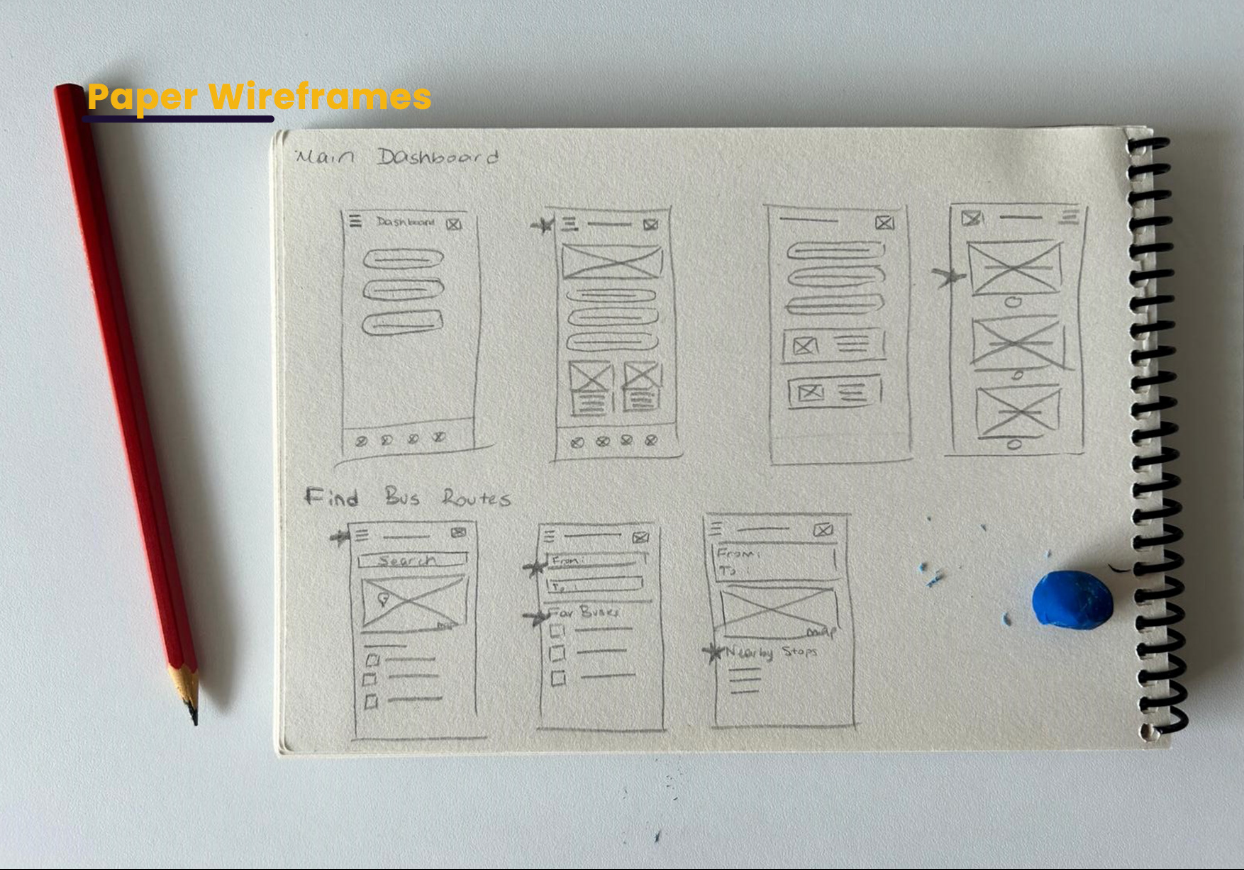 Paper Wireframes
Main Dashboard
Dashboard
Find Bus Routes
Search
From:
To:
Fav Buses
From:
To:
map
Nearby Stops